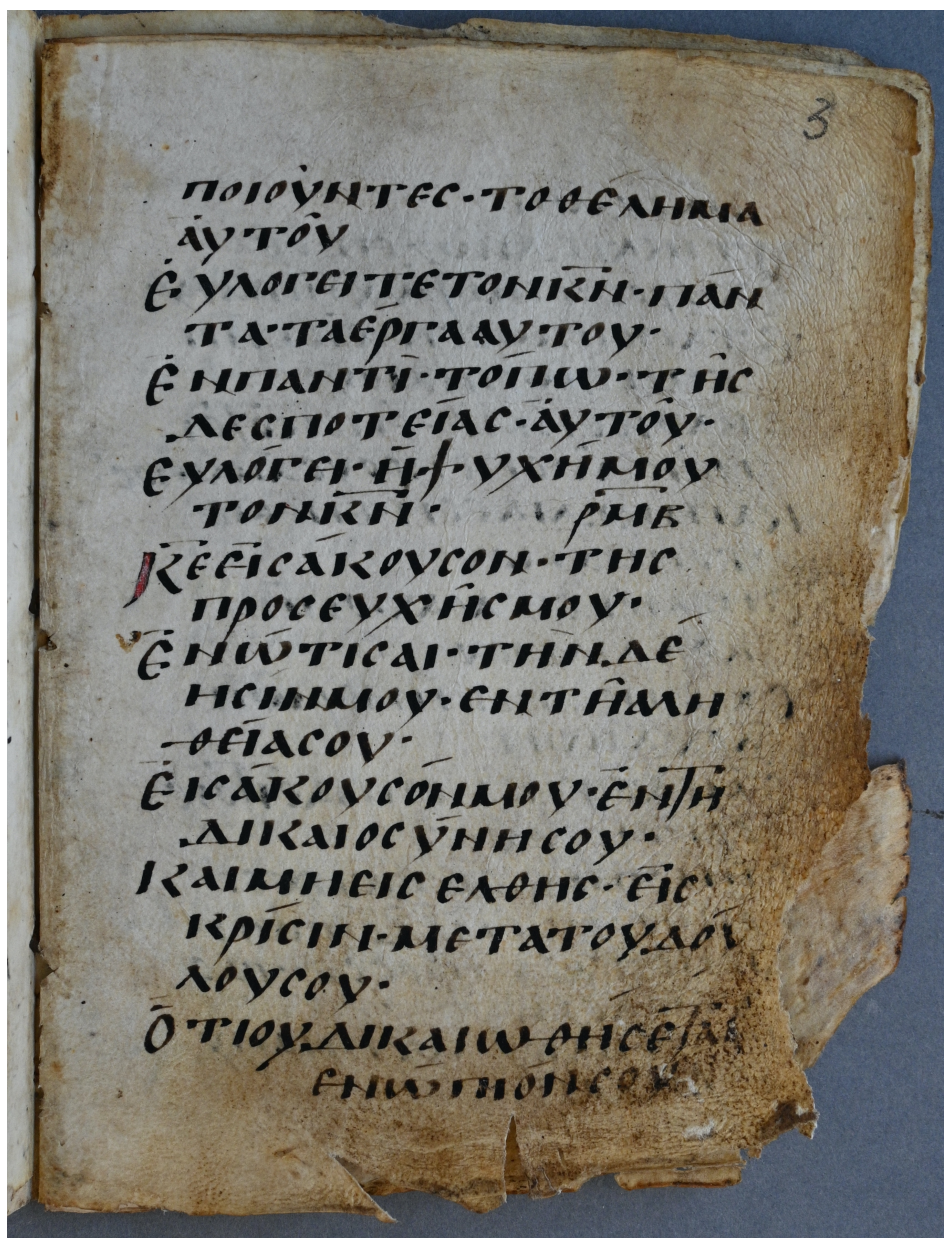 3
ποιοὺντες· το θέλημα
ἀυτοῦ
Ἐυλογειτε τον κ̅ν̅· πάν
τα· τα έργα αυτου·
Ἐν παντὶ· τόπω· τῆς
δεσποτείας· ἀυτοῦ·
Ευλόγει· ἡ ψυχή μου
τον κ̅ν̅· ρ̅μ̅β̅
Κ̅ε̅ εἰσάκουσον· της
προσευχῆς μου·
Ἐνώτισαι· τὴν δέ
ησιν μου· εν τῆ αλη
θεία σου·
Ἐισάκουσόν μου· ἐν τη
δικαιοσύνη σου·
Και μη εισελθης· εἰς
κρίσιν· μετα του δού
λου σου·
Ὁτι ου δικαιωθησεται
ενώπιόν σου